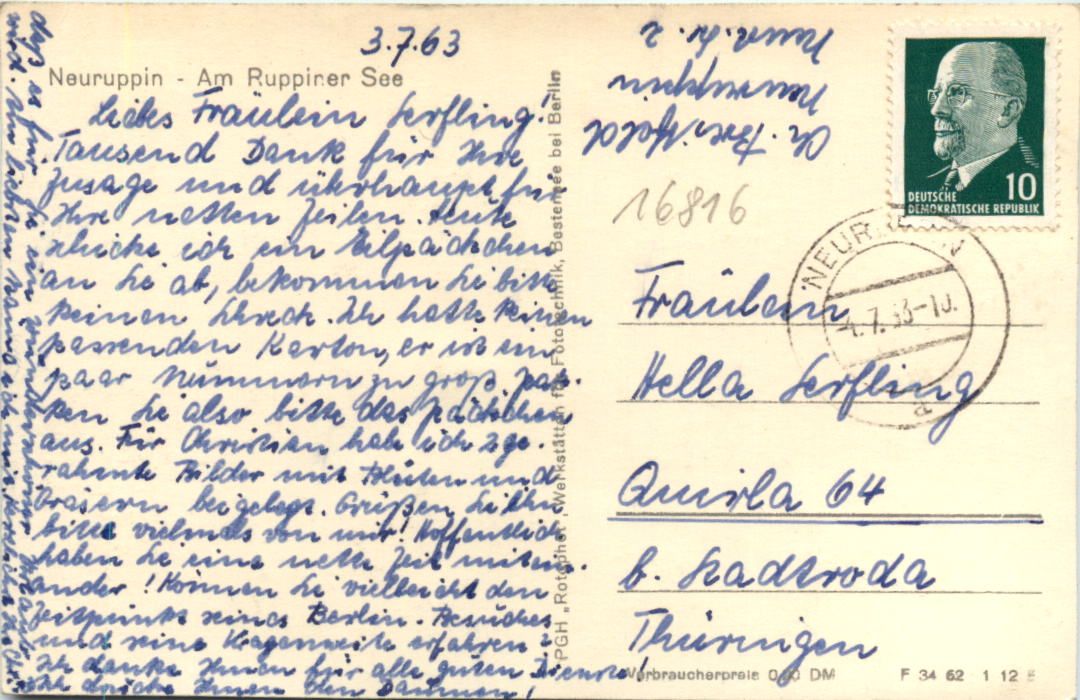 3.7.63
Neuruppin - Am Ruppiner See
Liebes Fräulein Serfling!
Tausend Dank für Ihre
Zusage und überhaupt für
Ihre netten Zeilen. Heute
schicke ich ein Eilpäckchen
an Sie ab, bekommen Sie bitte
keinen Schreck. Ich hatte keinen
passenden Karton, er ist ein
paar Nummern zu groß. Pak-
ken Sie also bitte das Päckchen
aus. Für Christian habe ich 2 ge-
rahmte Bilder mit Blüten und
Gräsern beigelegt. Grüßen Sie ihn
bitte vielmals von mir! Hoffentlich
haben Sie eine nette Zeit mitein-
ander! Können Sie vielleicht den
Zeitpunkt seines Berlin-Besuches
und seine Kragenweite erfahren?
Ich danke Ihnen für alle guten Dienste!
Ich drücke Ihnen den Daumen,
daß es für Sie ein wunderschöner
wird.
PGH „Rotophot", Werkstätten für Fototechnik, Bestensee bei Berlin
Neuruppin
16816
DEUTSCHE
DEMOKRATISCHE REPUBLIK
10
NEURUPPIN
-4.7.63-10.
Fräulein
Hella Serfling
Quirla 64
b. Stadtroda
Thüringen
Verbraucherpreis 0,20 DM
F 34 62 1 12